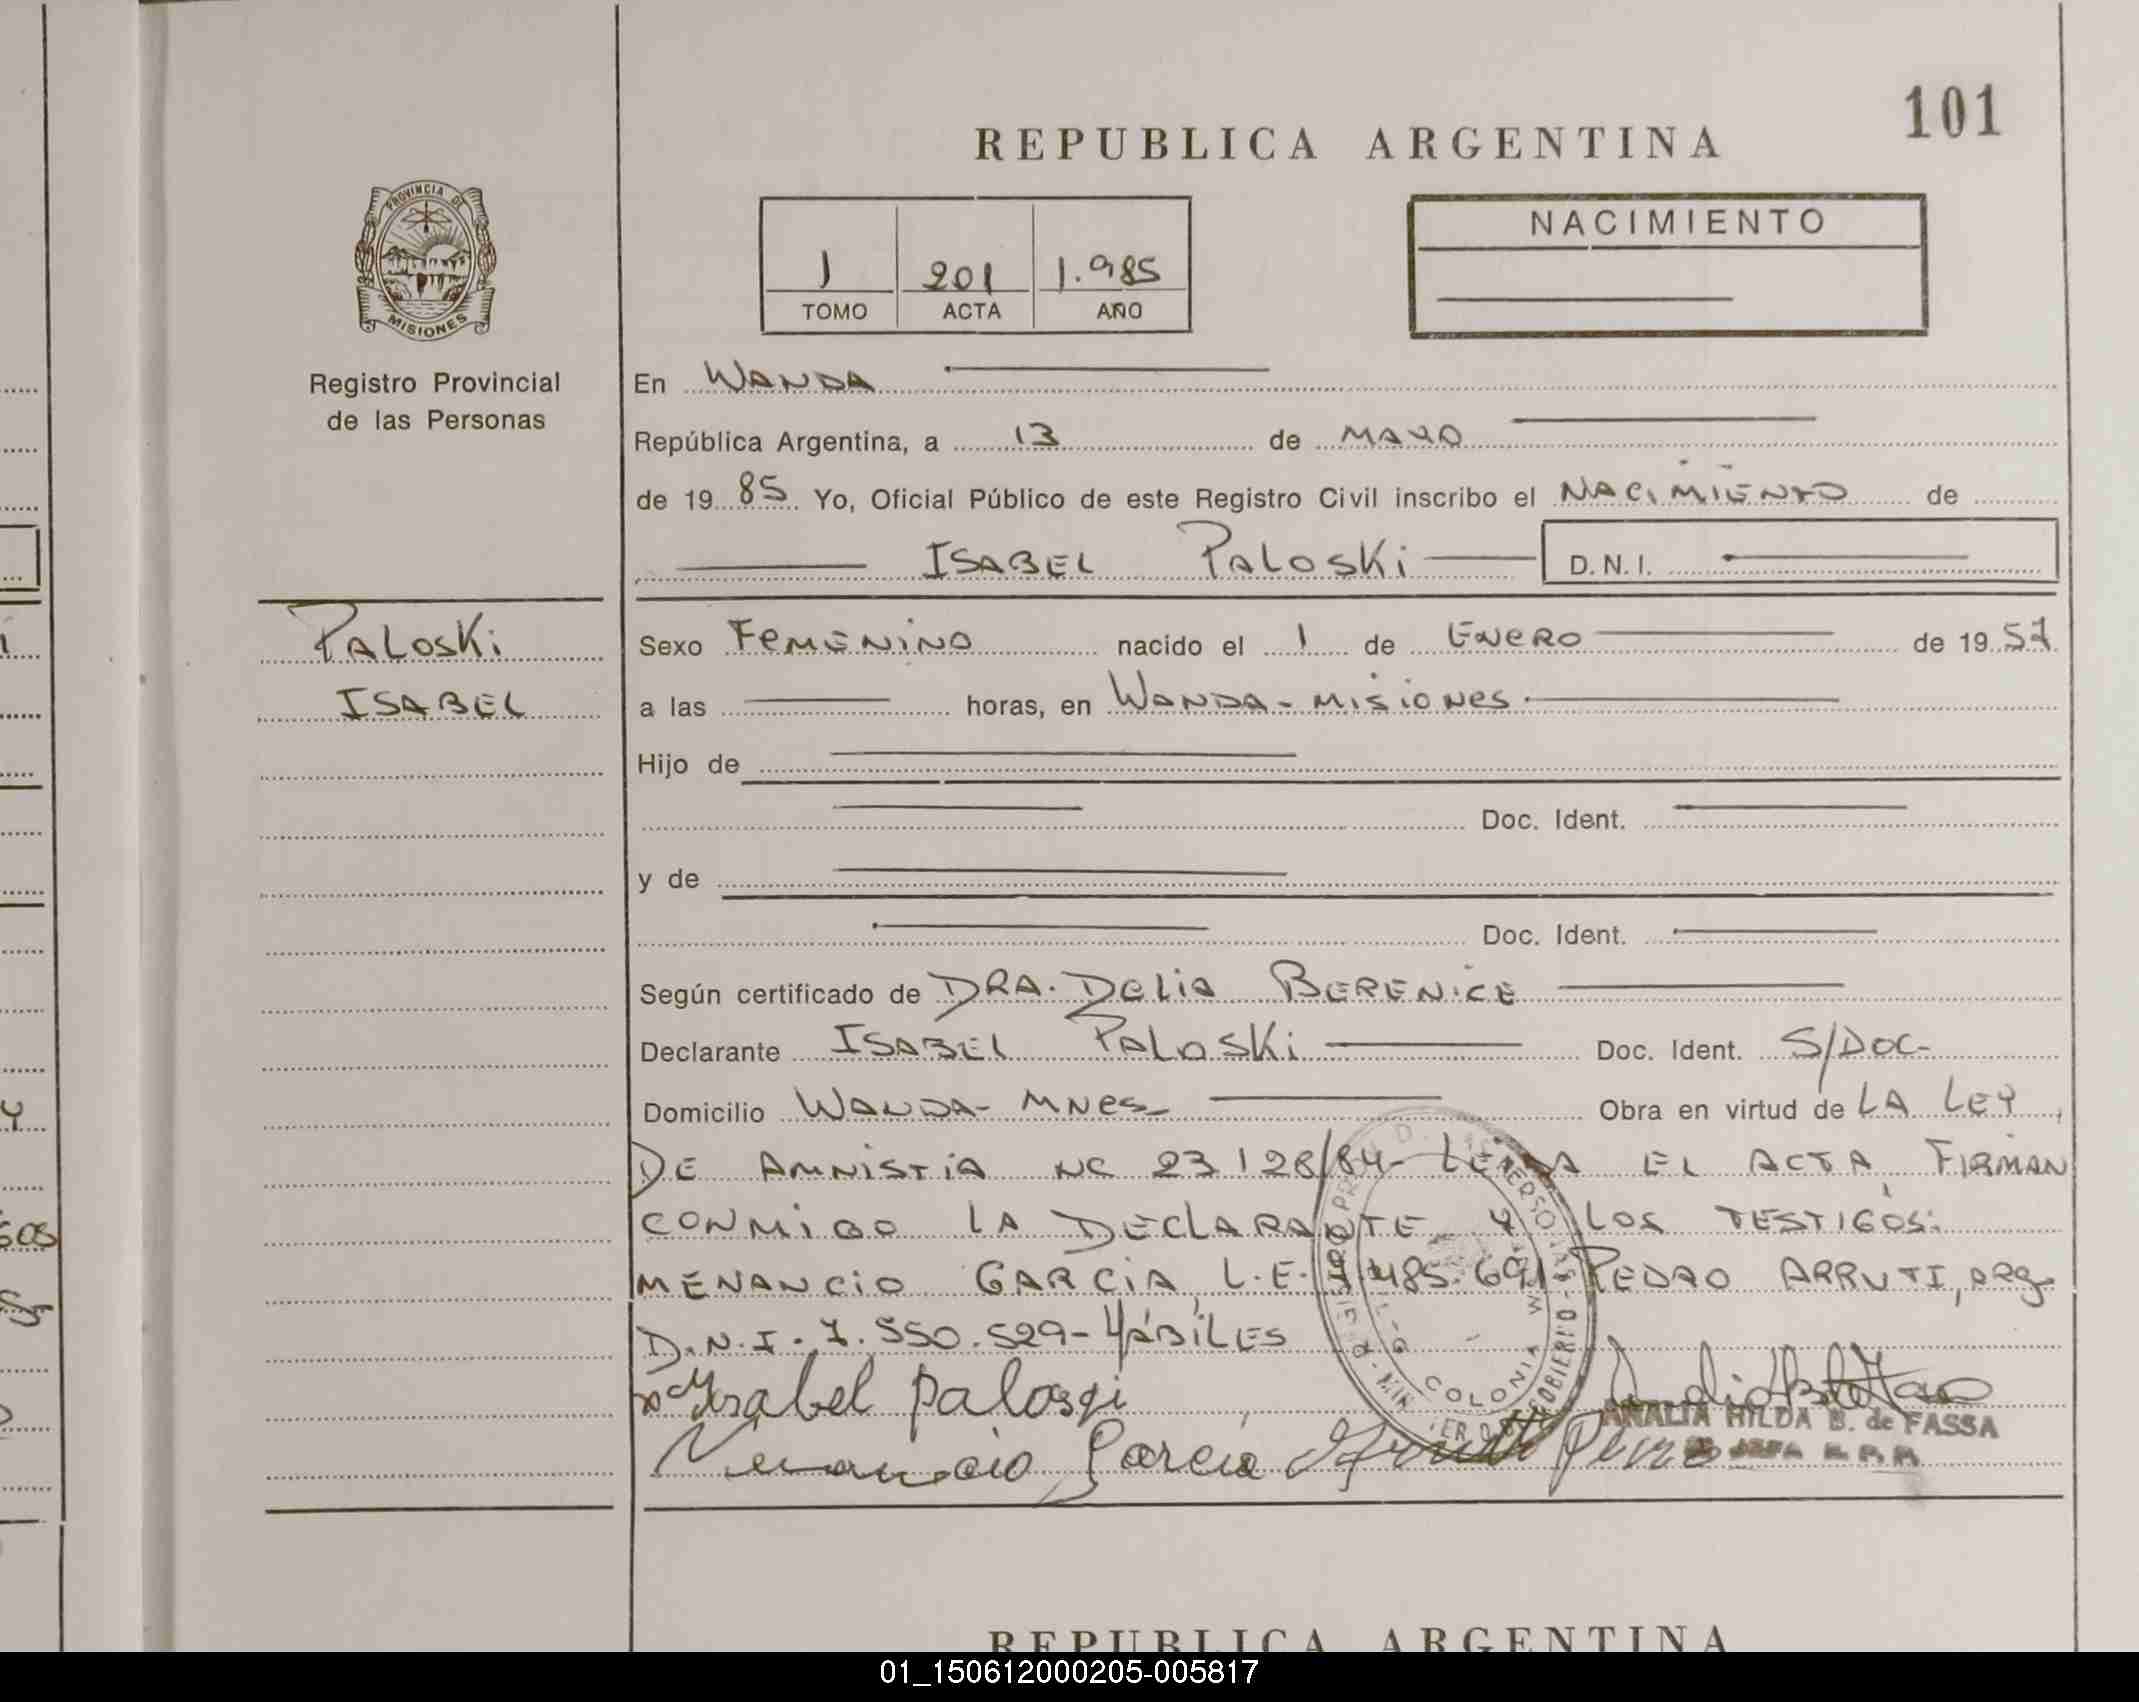 101
REPUBLICA ARGENTINA
PROVINCIA DE
MISIONES
Registro Provincial
de las Personas
1 201 1.985
TOMO ACTA AÑO
NACIMIENTO
En WANDA
República Argentina, a 13 de MAYO
de 1985 Yo, Oficial Público de este Registro Civil inscribo el NACIMIENTO de
ISABEL PALOSKI D.N.I.
PALOSKI
ISABEL
Sexo FEMENINO nacido el 1 de ENERO de 1957
a las horas, en WANDA - MISIONES
Hijo de
Doc. Ident.
y de
Doc. Ident.
Según certificado de DRA. DELIA BERENICE
Declarante ISABEL PALOSKI Doc. Ident. S/DOC-
Domicilio WANDA - MNES Obra en virtud de LA LEY
DE AMNISTIA Nº 23128/84- LEIDA EL ACTA FIRMAN
CONMIGO LA DECLARANTE Y LOS TESTIGOS:
MENANCIO GARCIA, L.E. 485.691 PEDRO ARRUTI, arg
D.N.I. 7.550.529- HÁBILES
Isabel palosqi
Menancio Garcia
ANALIA HILDA B. de FASSA
COLONIA
REPUBLICA ARGENTINA
01_150612000205-005817